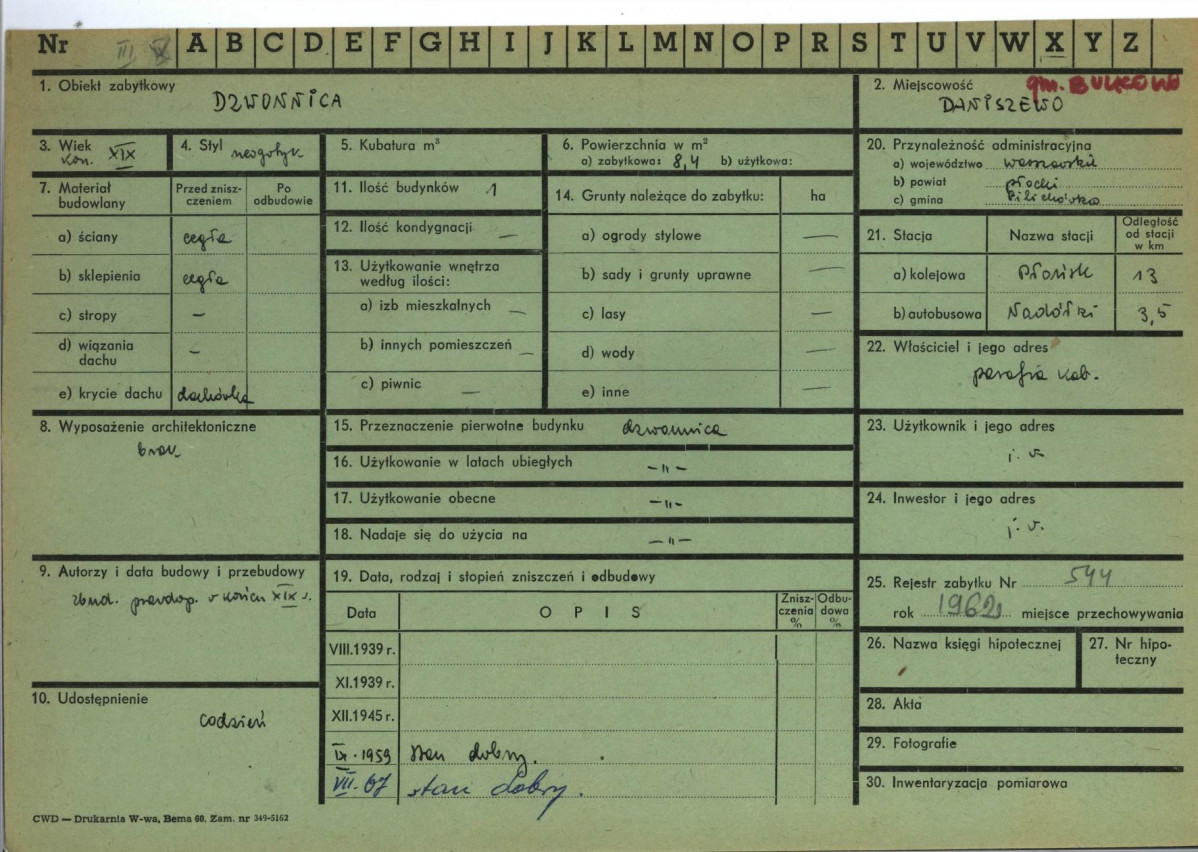 Nr III A B C D E F G H I J K L M N O P R S T U V W X Y Z
1. Obiekt zabytkowy
DZWONNICA
2. Miejscowość gm. BULKOWO
DANISZEWO
3. Wiek
kon. XIX
4. Styl neogotyk
5. Kubatura m³
6. Powierzchnia w m²
a) zabytkowa: 8,4 b) użytkowa:
20. Przynależność administracyjna
a) województwo warszawskie
b) powiat płocki
c) gmina Pilichówko
7. Materiał budowlany
Przed znisz-
czeniem
Po
odbudowie
a) ściany cegła
b) sklepienia cegła
c) stropy —
d) wiązania
dachu —
e) krycie dachu dachówka
11. Ilość budynków 1
12. Ilość kondygnacji —
13. Użytkowanie wnętrza
według ilości:
a) izb mieszkalnych —
b) innych pomieszczeń —
c) piwnic —
14. Grunty należące do zabytku: ha
a) ogrody stylowe —
b) sady i grunty uprawne —
c) lasy —
d) wody —
e) inne —
21. Stacja Nazwa stacji
Odległość
od stacji
w km
a) kolejowa Płońsk 13
b) autobusowa Nadółki 3,5
22. Właściciel i jego adres
parafia kat.
8. Wyposażenie architektoniczne
brak
15. Przeznaczenie pierwotne budynku dzwonnica
16. Użytkowanie w latach ubiegłych —"—
17. Użytkowanie obecne —"—
18. Nadaje się do użycia na —"—
23. Użytkownik i jego adres
j. w.
24. Inwestor i jego adres
j. w.
9. Autorzy i data budowy i przebudowy
zbud. prawdop. w końcu XIX w.
10. Udostępnienie
codzień
19. Data, rodzaj i stopień zniszczeń i odbudowy
Data OPIS
Znisz-
czenia
%
Odbu-
dowa
%
VIII.1939 r.
XI.1939 r.
XII.1945 r.
IX.1959 stan dobry.
VII.67 stan dobry.
25. Rejestr zabytku Nr 544
rok 1962 miejsce przechowywania
26. Nazwa księgi hipotecznej
27. Nr hipo-
teczny
28. Akta
29. Fotografie
30. Inwentaryzacja pomiarowa
CWD — Drukarnia W-wa, Bema 60. Zam. nr 349-5162